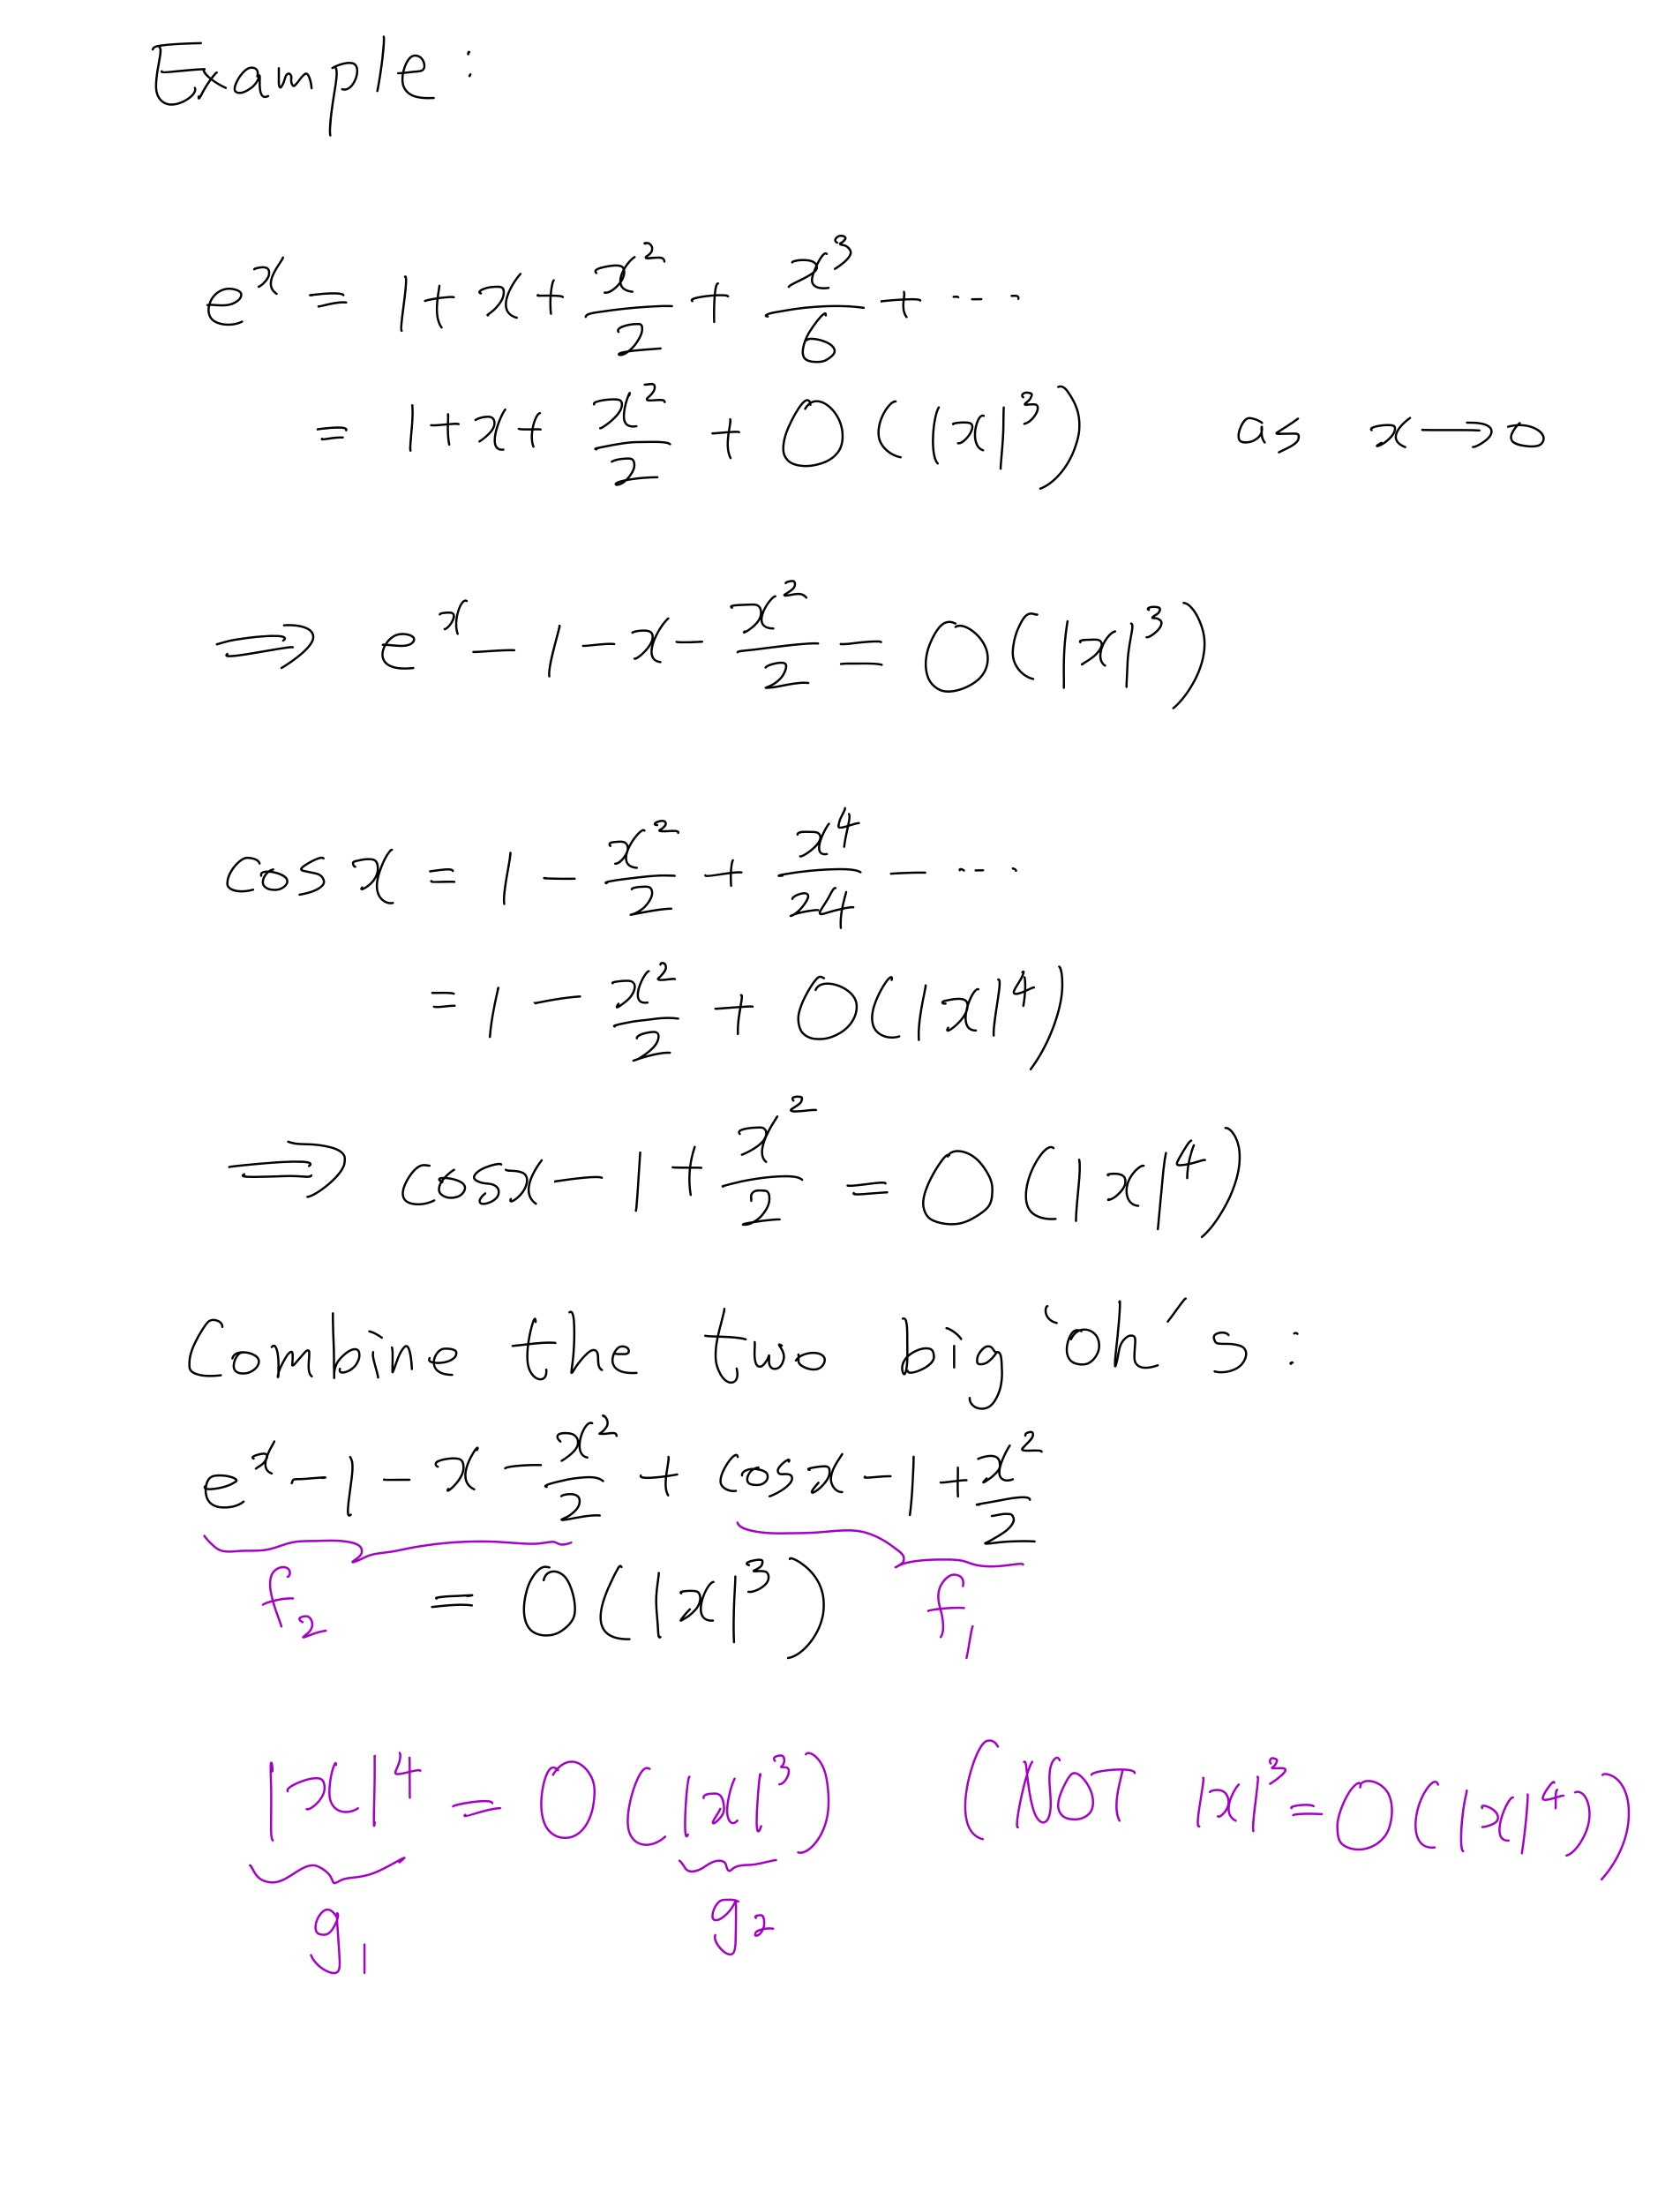 Example :
e^x = 1 + x + x^2/2 + x^3/6 + ...
= 1 + x + x^2/2 + O(|x|^3) as x → 0
⇒ e^x - 1 - x - x^2/2 = O(|x|^3)
cos x = 1 - x^2/2 + x^4/24 - ...
= 1 - x^2/2 + O(|x|^4)
⇒ cosx - 1 + x^2/2 = O(|x|^4)
Combine the two big 'oh's :
e^x - 1 - x - x^2/2 + cosx - 1 + x^2/2
f_2 = O(|x|^3) f_1
|x|^4 = O(|x|^3) (NOT |x|^3 = O(|x|^4))
g_1 g_2